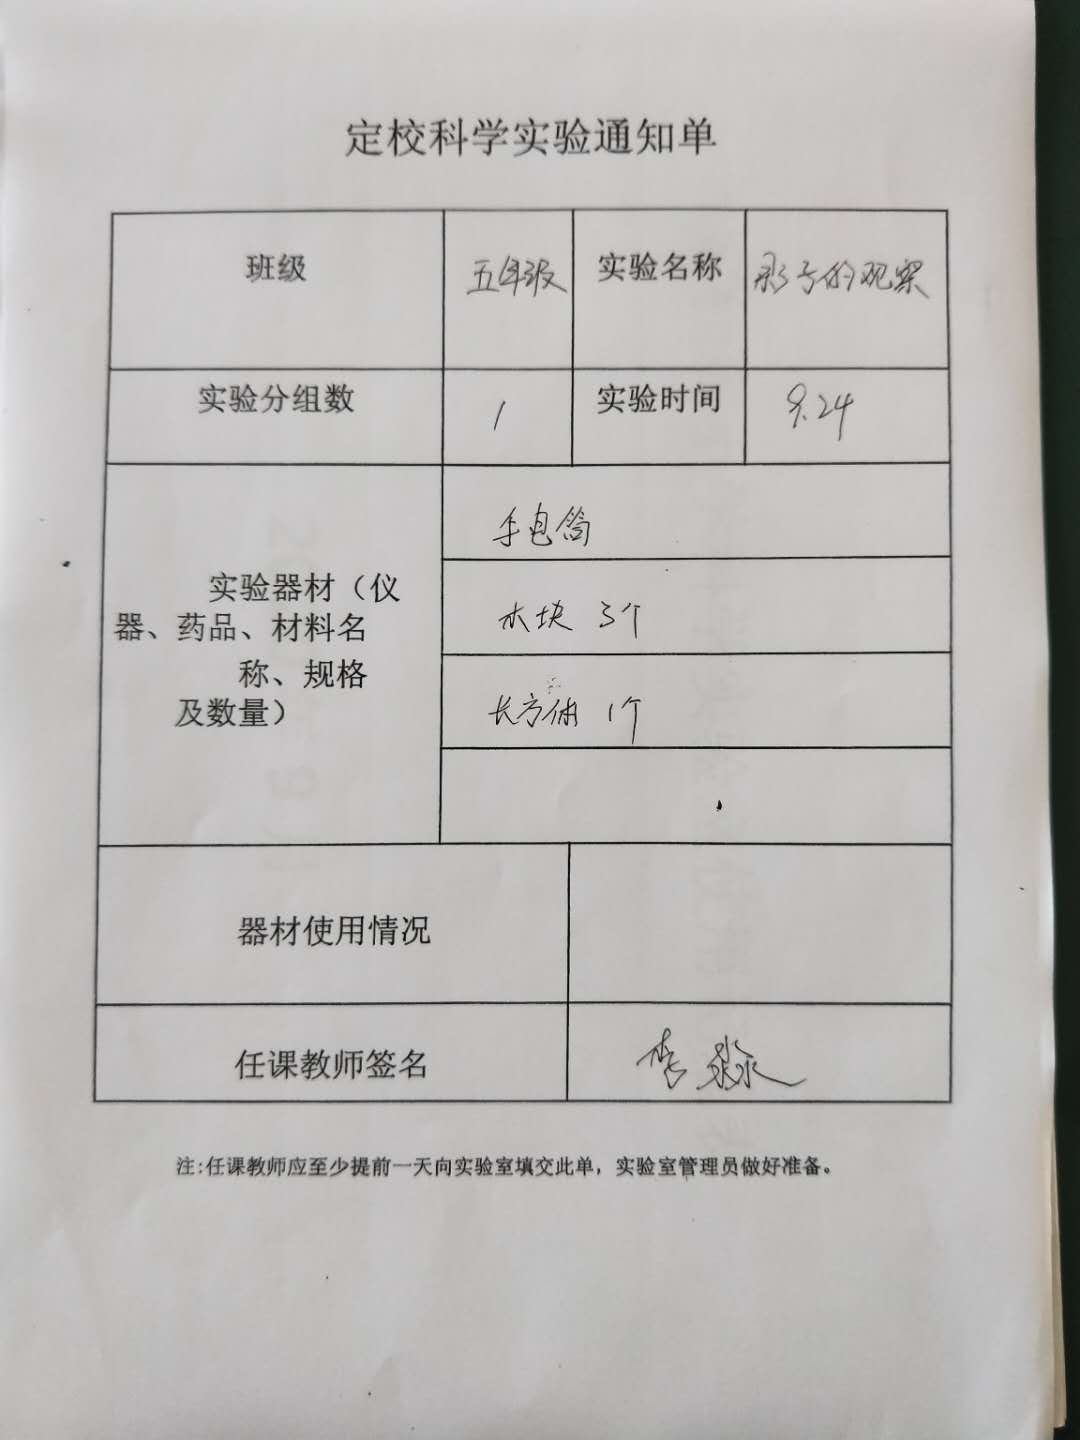 定校科学实验通知单
班级
五年级
实验名称
影子的观察
实验分组数
1
实验时间
9.24
实验器材（仪
器、药品、材料名
称、规格
及数量）
手电筒
木块 3个
长方体 1个
器材使用情况
任课教师签名
李淼
注:任课教师应至少提前一天向实验室填交此单，实验室管理员做好准备。